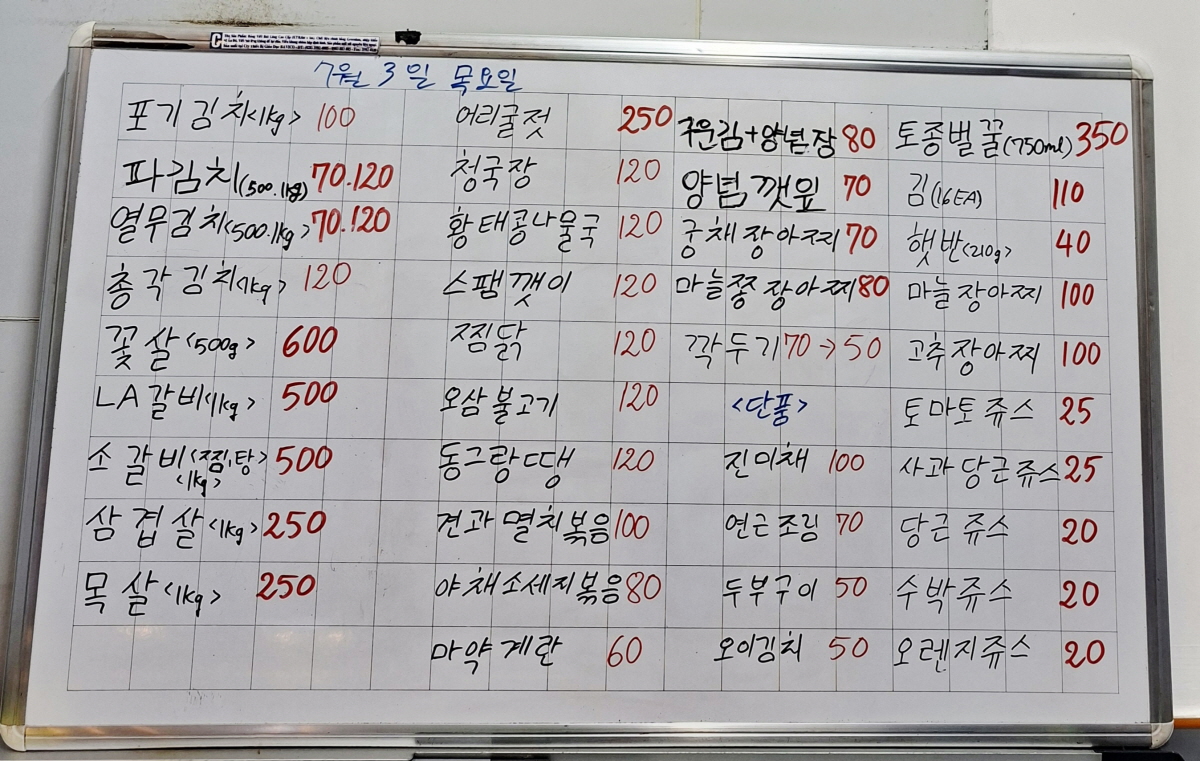 7월 3일 목요일
포기김치<1kg> 100
파김치(500.1kg) 70.120
열무김치<500.1kg> 70.120
총각김치<1kg> 120
꽃살<500g> 600
LA갈비<1kg> 500
소갈비<찜,탕> 500
<1kg>
삼겹살<1kg> 250
목살<1kg> 250
어리굴젓 250
청국장 120
황태콩나물국 120
스팸깻이 120
찜닭 120
오삼불고기 120
동그랑땡 120
견과멸치볶음 100
야채소세지볶음 80
마약계란 60
구운김+양념장 80
양념깻잎 70
궁채장아찌 70
마늘쫑장아찌 80
깍두기 70→50
<단품>
진미채 100
연근조림 70
두부구이 50
오이김치 50
토종벌꿀(750ml) 350
김(16EA) 110
햇반<210g> 40
마늘장아찌 100
고추장아찌 100
토마토쥬스 25
사과당근쥬스 25
당근쥬스 20
수박쥬스 20
오렌지쥬스 20